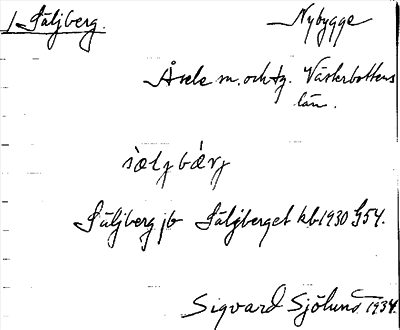 1 Säljberg. Nybygge
Åsele sn. och tg. Västerbottens
län.
sæ̀lj bǽrj
Säljberg jb Säljberget kb 1930 § 54.
Sigvard Sjölund 1934.